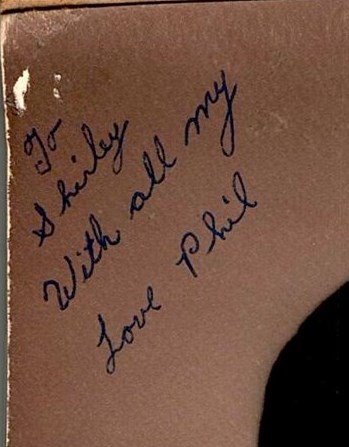 To
Shirley
With all my
Love Phil